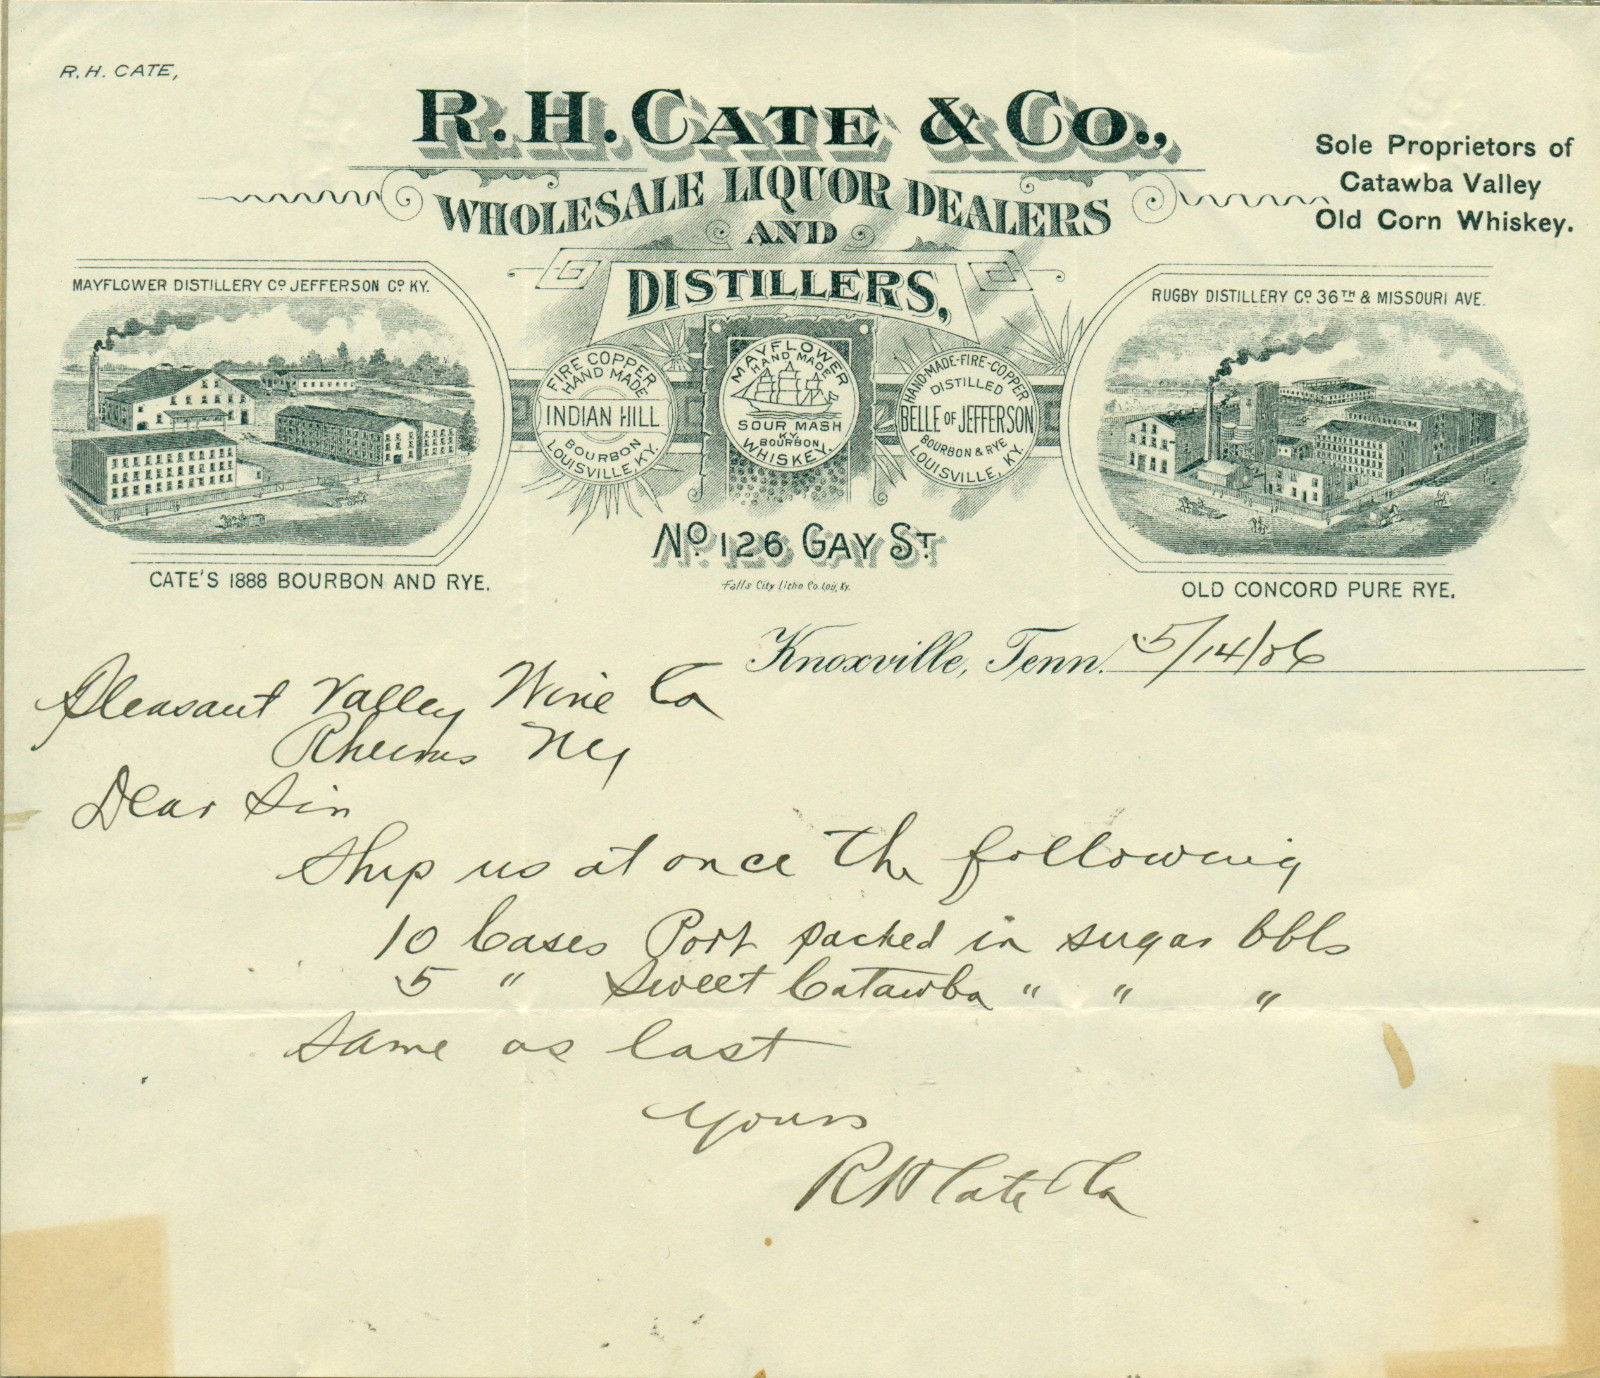 R. H. CATE,
R. H. CATE & CO.,
WHOLESALE LIQUOR DEALERS
AND
DISTILLERS,
Sole Proprietors of
Catawba Valley
Old Corn Whiskey.
MAYFLOWER DISTILLERY Co JEFFERSON Co KY.
CATE'S 1888 BOURBON AND RYE.
FIRE COPPER
HAND MADE
INDIAN HILL
BOURBON
LOUISVILLE, KY.
MAYFLOWER
HAND MADE
SOUR MASH
KY.
BOURBON
WHISKEY.
HAND-MADE-FIRE-COPPER
DISTILLED
BELLE OF JEFFERSON
BOURBON & RYE
LOUISVILLE, KY.
RUGBY DISTILLERY Co 36TH & MISSOURI AVE.
OLD CONCORD PURE RYE.
No 126 GAY ST.
Falls City Litho Co. Lou, Ky.
Knoxville, Tenn. 5/14/06
Pleasant Valley Wine Co
Rheims NY
Dear Sir
Ship us at once the following
10 Cases Port packed in sugar bbls
5 " Sweet Catawba " " "
Same as last
Yours
R H Cate & Co